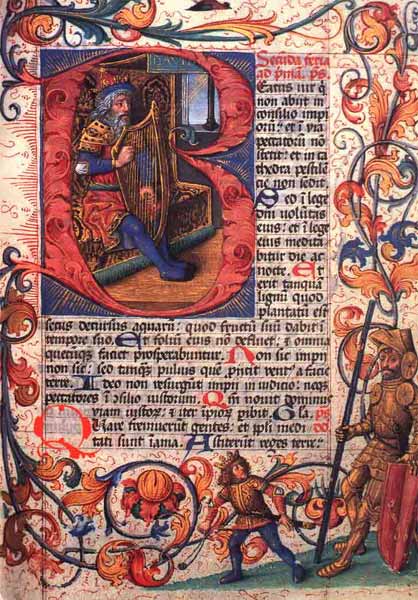 Secūda feria
ad primā. ps
Eatus uir q
non abijt in
consilio imp
iorū: et ī uia
peccatorū nō
stetit: et in ca
thedra pestilē
cie non sedit.
Sed ī lege
dnī voluntas
eius: et ī lege
eius medita
bitur die ac
nocte. Et
erit tanquā
lignū quod
plantatū est
secus decursus aquarū: quod fructū suū dabit ī
tempore suo. Et foliū eius nō defluet: et omīa
quecūq; faciet prosperabuntur. Non sic impij
non sic: sed tanq̄ puluis quē proicit ventꝰ a facie
terre. Ideo non resurgūt impij in iudicio: neq;
peccatores ī ꝯsilio iustorum. Qm̄ nouit dominꝰ
viam iustorū: et iter impiorū peribit. Gla. ps
Quare fremuerūt gentes: et popli medi
tati sunt īania. Astiterūt reges terre: